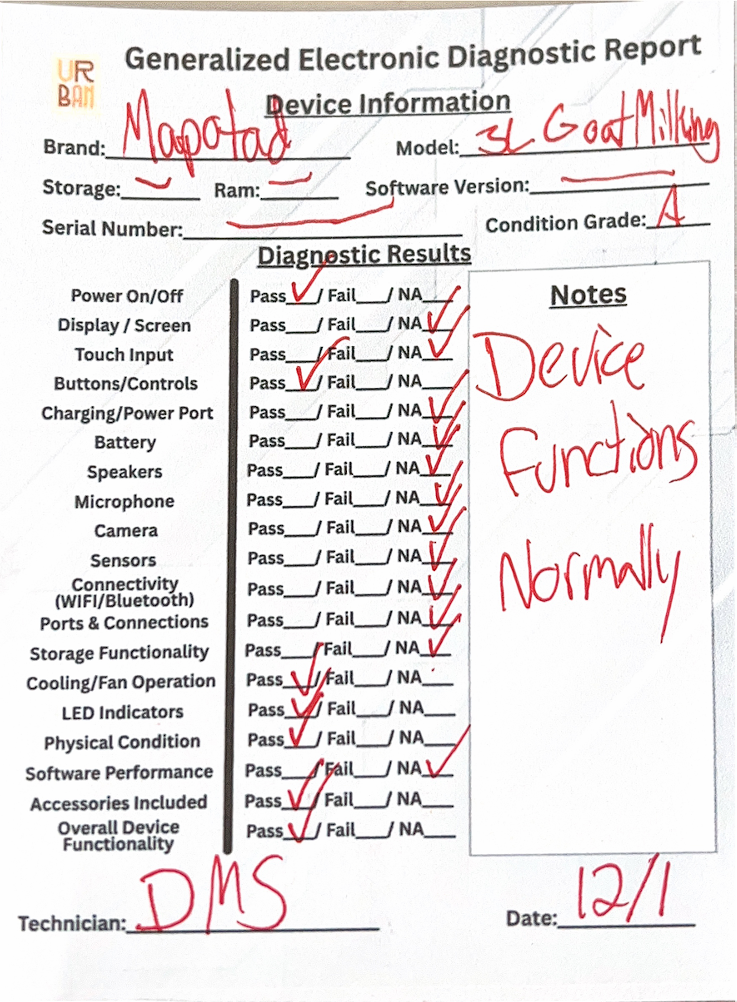 UR
BAN
Generalized Electronic Diagnostic Report
Device Information
Brand: Mapotad Model: 3L Goat Milking
Storage: Ram: Software Version:
Serial Number: Condition Grade: A
Diagnostic Results
Power On/Off Pass ✓ / Fail / NA
Display / Screen Pass / Fail / NA ✓
Touch Input Pass / Fail / NA ✓
Buttons/Controls Pass ✓ / Fail / NA
Charging/Power Port Pass / Fail / NA ✓
Battery Pass / Fail / NA ✓
Speakers Pass / Fail / NA ✓
Microphone Pass / Fail / NA ✓
Camera Pass / Fail / NA ✓
Sensors Pass / Fail / NA ✓
Connectivity
(WIFI/Bluetooth) Pass / Fail / NA ✓
Ports & Connections Pass / Fail / NA ✓
Storage Functionality Pass / Fail / NA ✓
Cooling/Fan Operation Pass ✓ / Fail / NA
LED Indicators Pass ✓ / Fail / NA
Physical Condition Pass ✓ / Fail / NA
Software Performance Pass / Fail / NA ✓
Accessories Included Pass ✓ / Fail / NA
Overall Device
Functionality Pass ✓ / Fail / NA
Notes
Device
Functions
Normally
Technician: DMS Date: 12/1